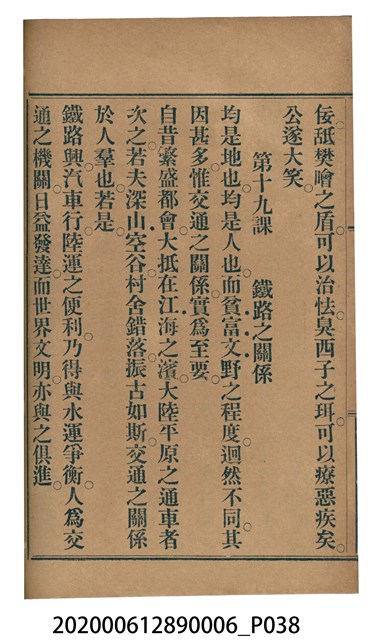 佞舐樊噲之盾。可以治怯。臭西子之珥。可以療惡疾矣。
公遂大笑。
第十九課　鐵路之關係
均是地也。均是人也。而貧富文野之程度。迴然不同。其
因甚多。惟交通之關係。實爲至要。
自昔繁盛都會。大抵在江海之濱。大陸平原之通車者
次之。若夫深山空谷。村舍錯落。振古如斯。交通之關係
於人羣也若是。
鐵路興。汽車行。陸運之便利。乃得與水運爭衡。人爲交
通之機關。日益發達。而世界文明。亦與之俱進。
202000612890006_P038